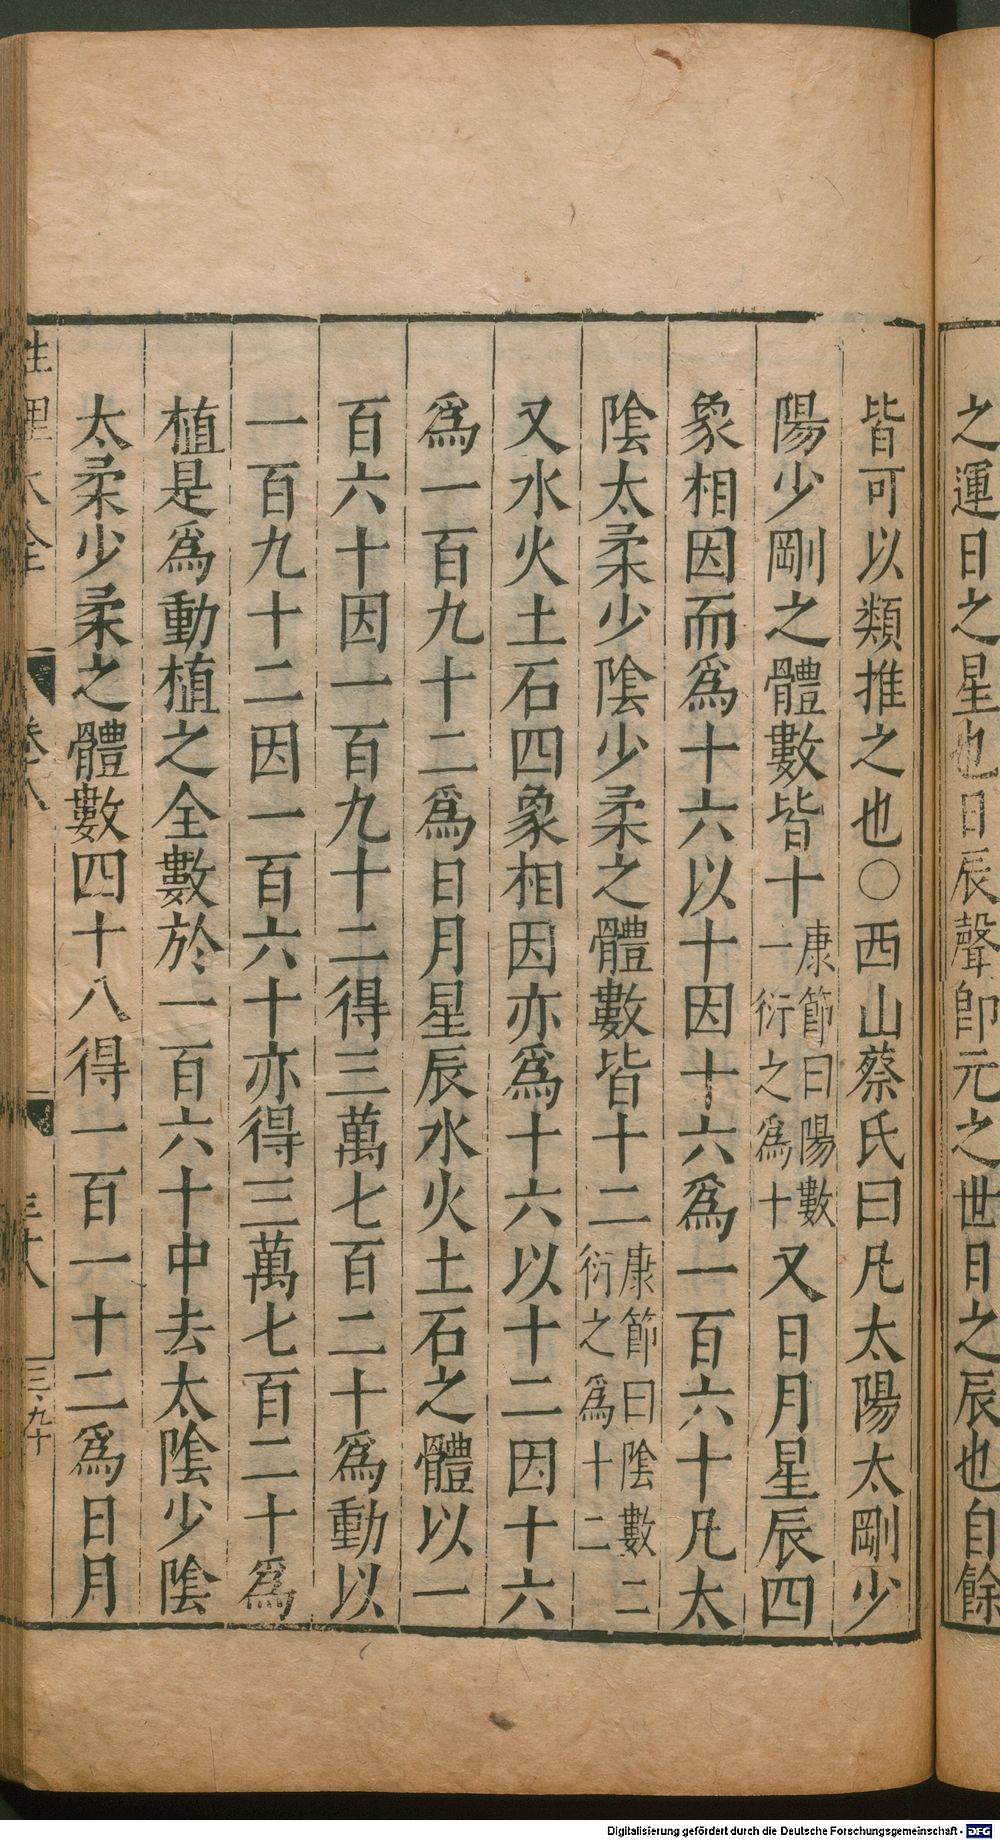 之運日之星也日辰聲卽元之世日之辰也自餘
皆可以類推之也○西山蔡氏曰凡太陽太剛少
陽少剛之體數皆十康節曰陽數一衍之為十又日月星辰四
象相因而為十六以十因十六為一百六十凡太
陰太柔少陰少柔之體數皆十二康節曰陰數二衍之為十二
又水火土石四象相因亦為十六以十二因十六
為一百九十二為日月星辰水火土石之體以一
百六十因一百九十二得三萬七百二十為動以
一百九十二因一百六十亦得三萬七百二十為
植是為動植之全數於一百六十中去太陰少陰
太柔少柔之體數四十八得一百一十二為日月
性理大全 卷八 三十八 三·九十
Digitalisierung gefördert durch die Deutsche Forschungsgemeinschaft - DFG